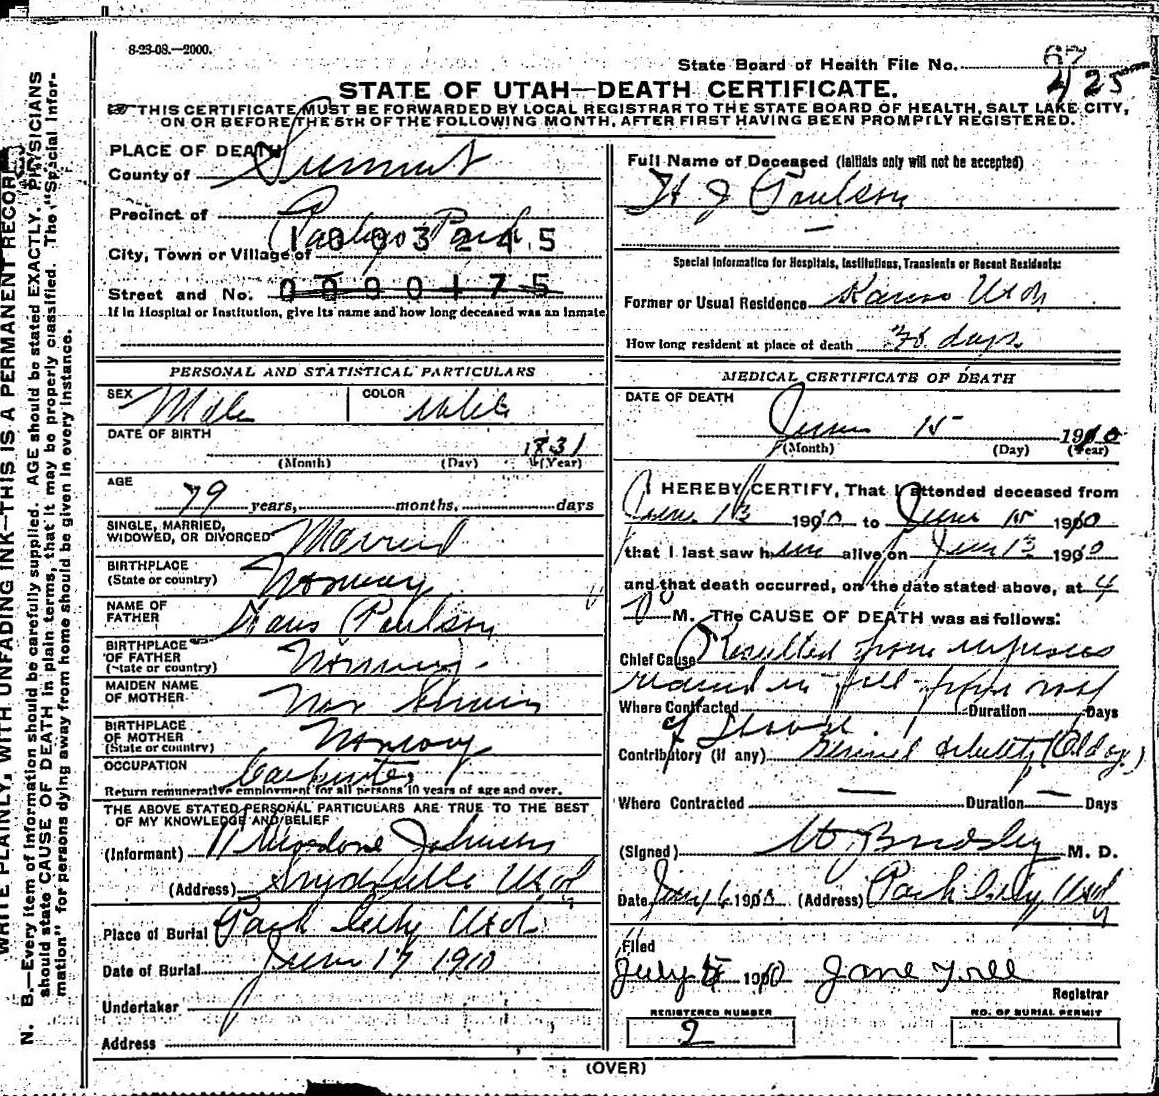 8-23-08.—2000.
State Board of Health File No. 67
425
STATE OF UTAH—DEATH CERTIFICATE.
THIS CERTIFICATE MUST BE FORWARDED BY LOCAL REGISTRAR TO THE STATE BOARD OF HEALTH, SALT LAKE CITY,
ON OR BEFORE THE 5TH OF THE FOLLOWING MONTH, AFTER FIRST HAVING BEEN PROMPTLY REGISTERED.
PLACE OF DEATH
County of Summit
Precinct of
City, Town or Village of
1003245
Street and No. 0090175
If in Hospital or Institution, give its name and how long deceased was an inmate
PERSONAL AND STATISTICAL PARTICULARS
SEX Male COLOR White
DATE OF BIRTH 1831
(Month) (Day) (Year)
AGE
79 years, months, days
SINGLE, MARRIED,
WIDOWED, OR DIVORCED Married
BIRTHPLACE
(State or country) Norway
NAME OF
FATHER Hans Paulson
BIRTHPLACE
OF FATHER
(State or country) Norway
MAIDEN NAME
OF MOTHER
BIRTHPLACE
OF MOTHER
(State or country) Norway
OCCUPATION Carpenter
Return remunerative employment for all persons 10 years of age and over.
THE ABOVE STATED PERSONAL PARTICULARS ARE TRUE TO THE BEST
OF MY KNOWLEDGE AND BELIEF
(Informant) Theodore Johnson
(Address) Snyderville Utah
Place of Burial Park City Utah
Date of Burial June 17 1910
Undertaker
Address
Full Name of Deceased (Initials only will not be accepted)
H J Paulson
Special Information for Hospitals, Institutions, Transients or Recent Residents:
Former or Usual Residence Kamas Utah
How long resident at place of death 30 days
MEDICAL CERTIFICATE OF DEATH
DATE OF DEATH
June 15 1910
(Month) (Day) (Year)
I HEREBY CERTIFY, That I attended deceased from
June 13 1910 to June 15 1910
that I last saw him alive on June 13 1910
and that death occurred, on the date stated above, at 4
M. The CAUSE OF DEATH was as follows:
Chief Cause Resulted from injuries
received in fall from roof
Where Contracted Duration Days
of house
Contributory (if any) General debility (Old age)
Where Contracted — Duration — Days
(Signed) M. D.
Date 1910 (Address) Park City Utah
Filed
July 5 1910 Jane Food
Registrar
REGISTERED NUMBER
2
NO. OF BURIAL PERMIT
(OVER)
WRITE PLAINLY, WITH UNFADING INK—THIS IS A PERMANENT RECORD
N. B.—Every item of information should be carefully supplied. AGE should be stated EXACTLY. PHYSICIANS
should state CAUSE OF DEATH in plain terms, that it may be properly classified. The "Special Infor-
mation" for persons dying away from home should be given in every instance.